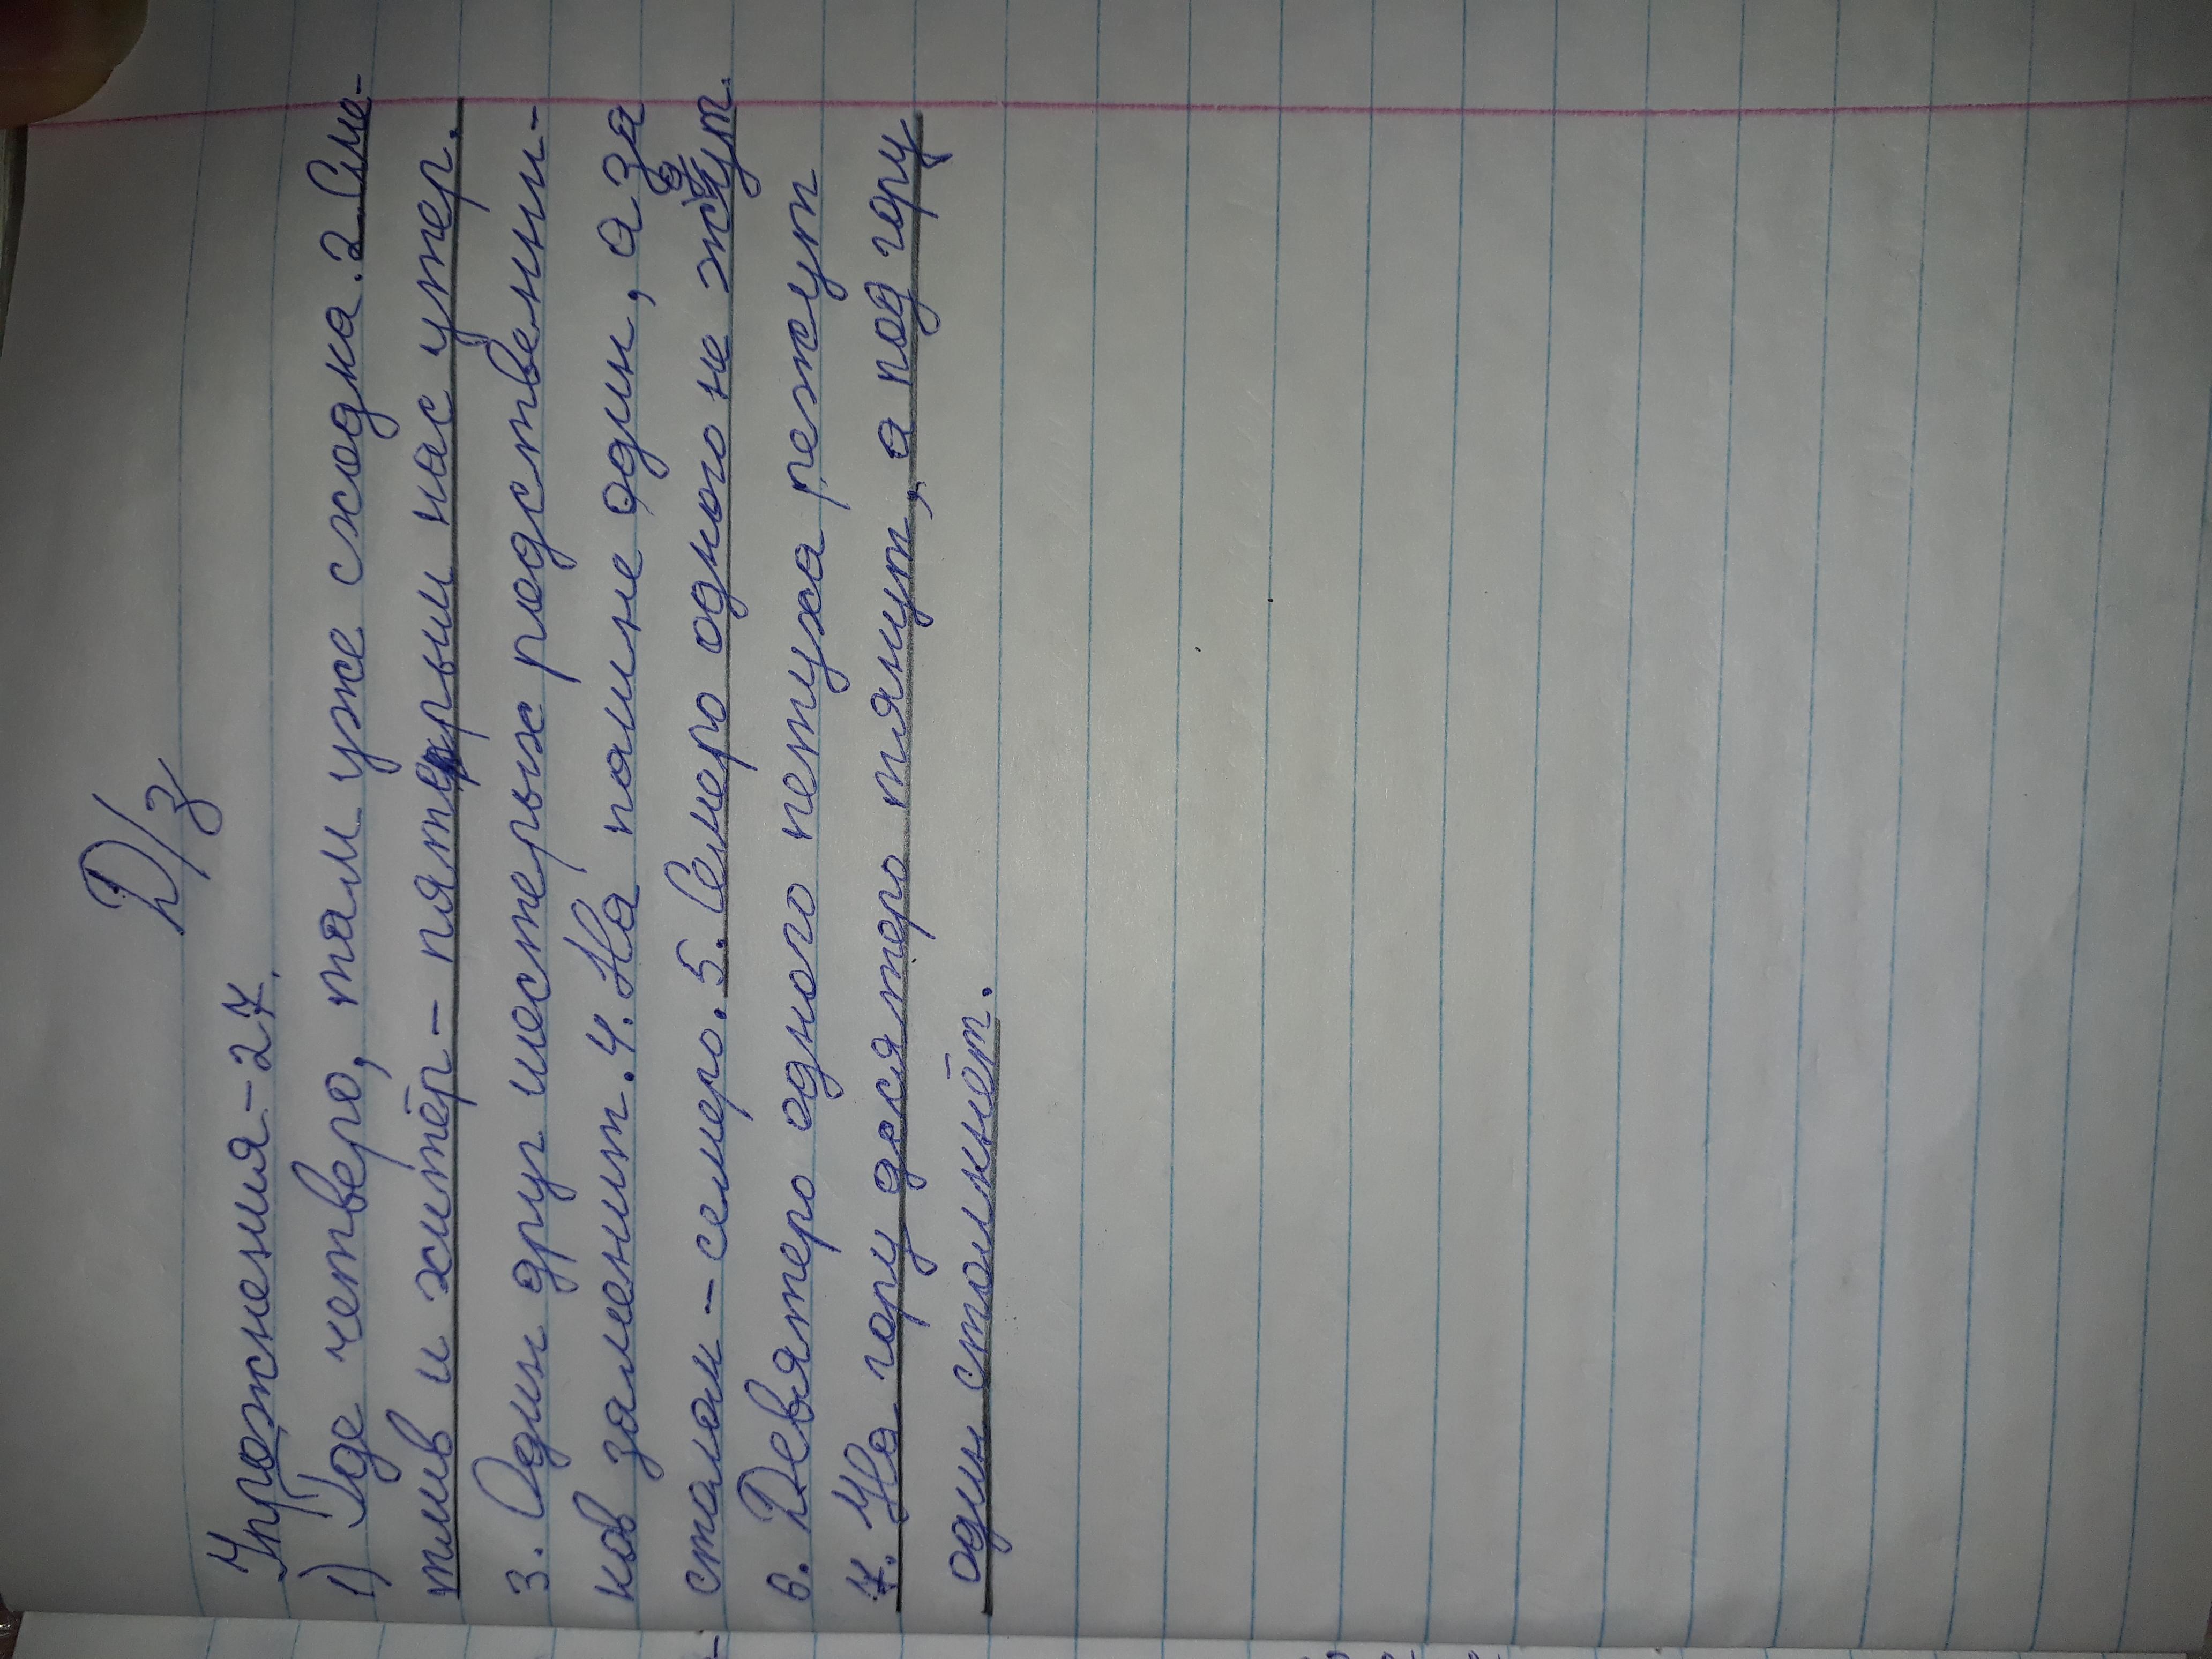 Д/з
Упрожнения-27.
1) Где четверо, там уже сходка. 2 Сме-
тлив и хитёр - пятерым нас утер.
3. Один друг шестерых родственни-
ков заменит. 4. На полине один, а за
столом - семеро. 5. Семеро одного не ждут.
6. Девятеро одного петуха режут
7. На гору десятеро тянут, а под гору
один столкнёт.